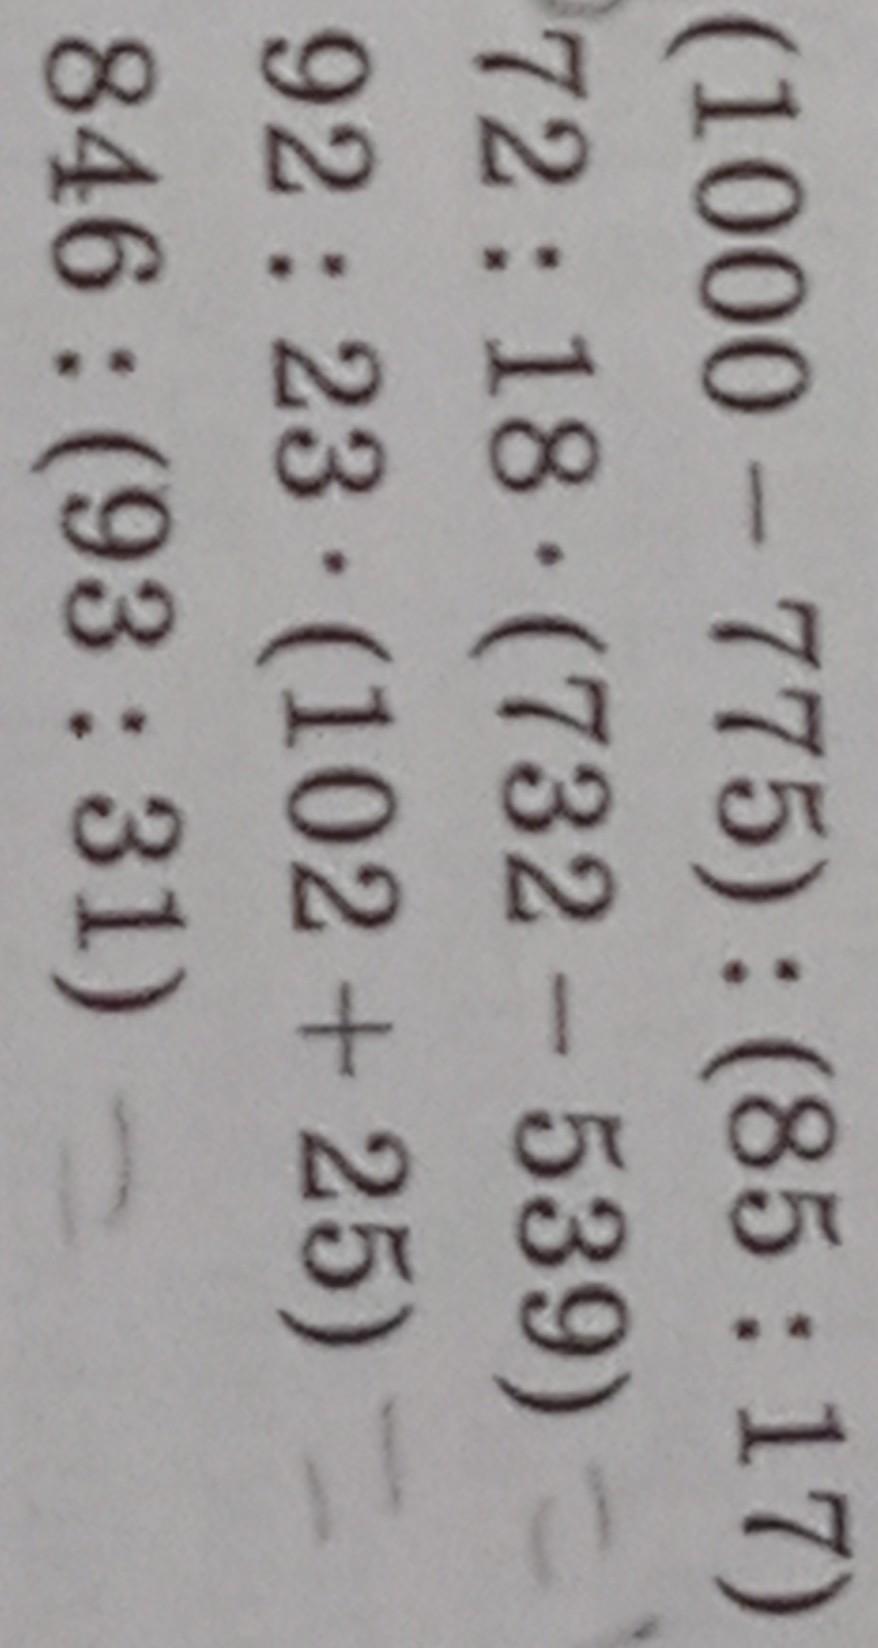 (1000 – 775) : (85 : 17)
72 : 18 · (732 – 539) =
92 : 23 · (102 + 25) =
846 : (93 : 31) =